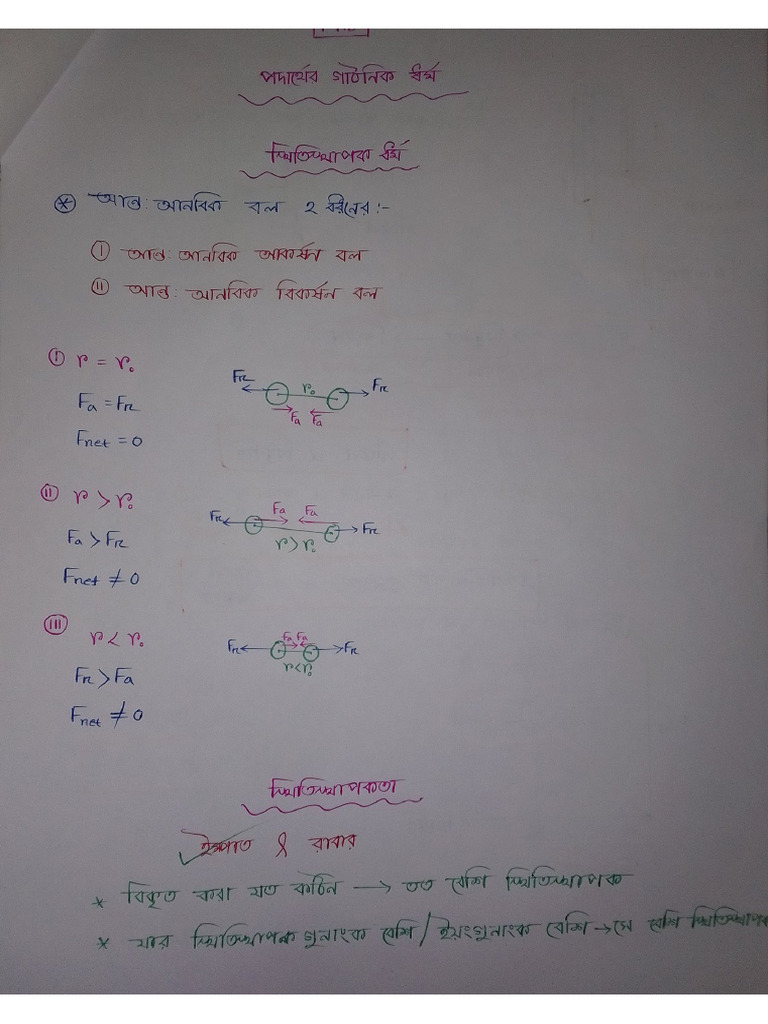 পদার্থের গাঠনিক ধর্ম
স্থিতিস্থাপক ধর্ম
* আন্ত: আনবিক বল ২ ধরনের :-
i আন্ত: আনবিক আকর্ষন বল
ii আন্ত: আনবিক বিকর্ষন বল
i r = r₀
Fa = FR
Fnet = 0
FR r₀ FR
Fa Fa
ii r > r₀
Fa > FR
Fnet ≠ 0
FR Fa Fa FR
r > r₀
iii r < r₀
FR > Fa
Fnet ≠ 0
FR Fa Fa FR
r < r₀
স্থিতিস্থাপকতা
ইস্পাত & রাবার
* বিকৃত করা যত কঠিন → তত বেশি স্থিতিস্থাপক
* যার স্থিতিস্থাপক গুনাংক বেশি / ইয়ংগুনাংক বেশি → সে বেশি স্থিতিস্থাপক